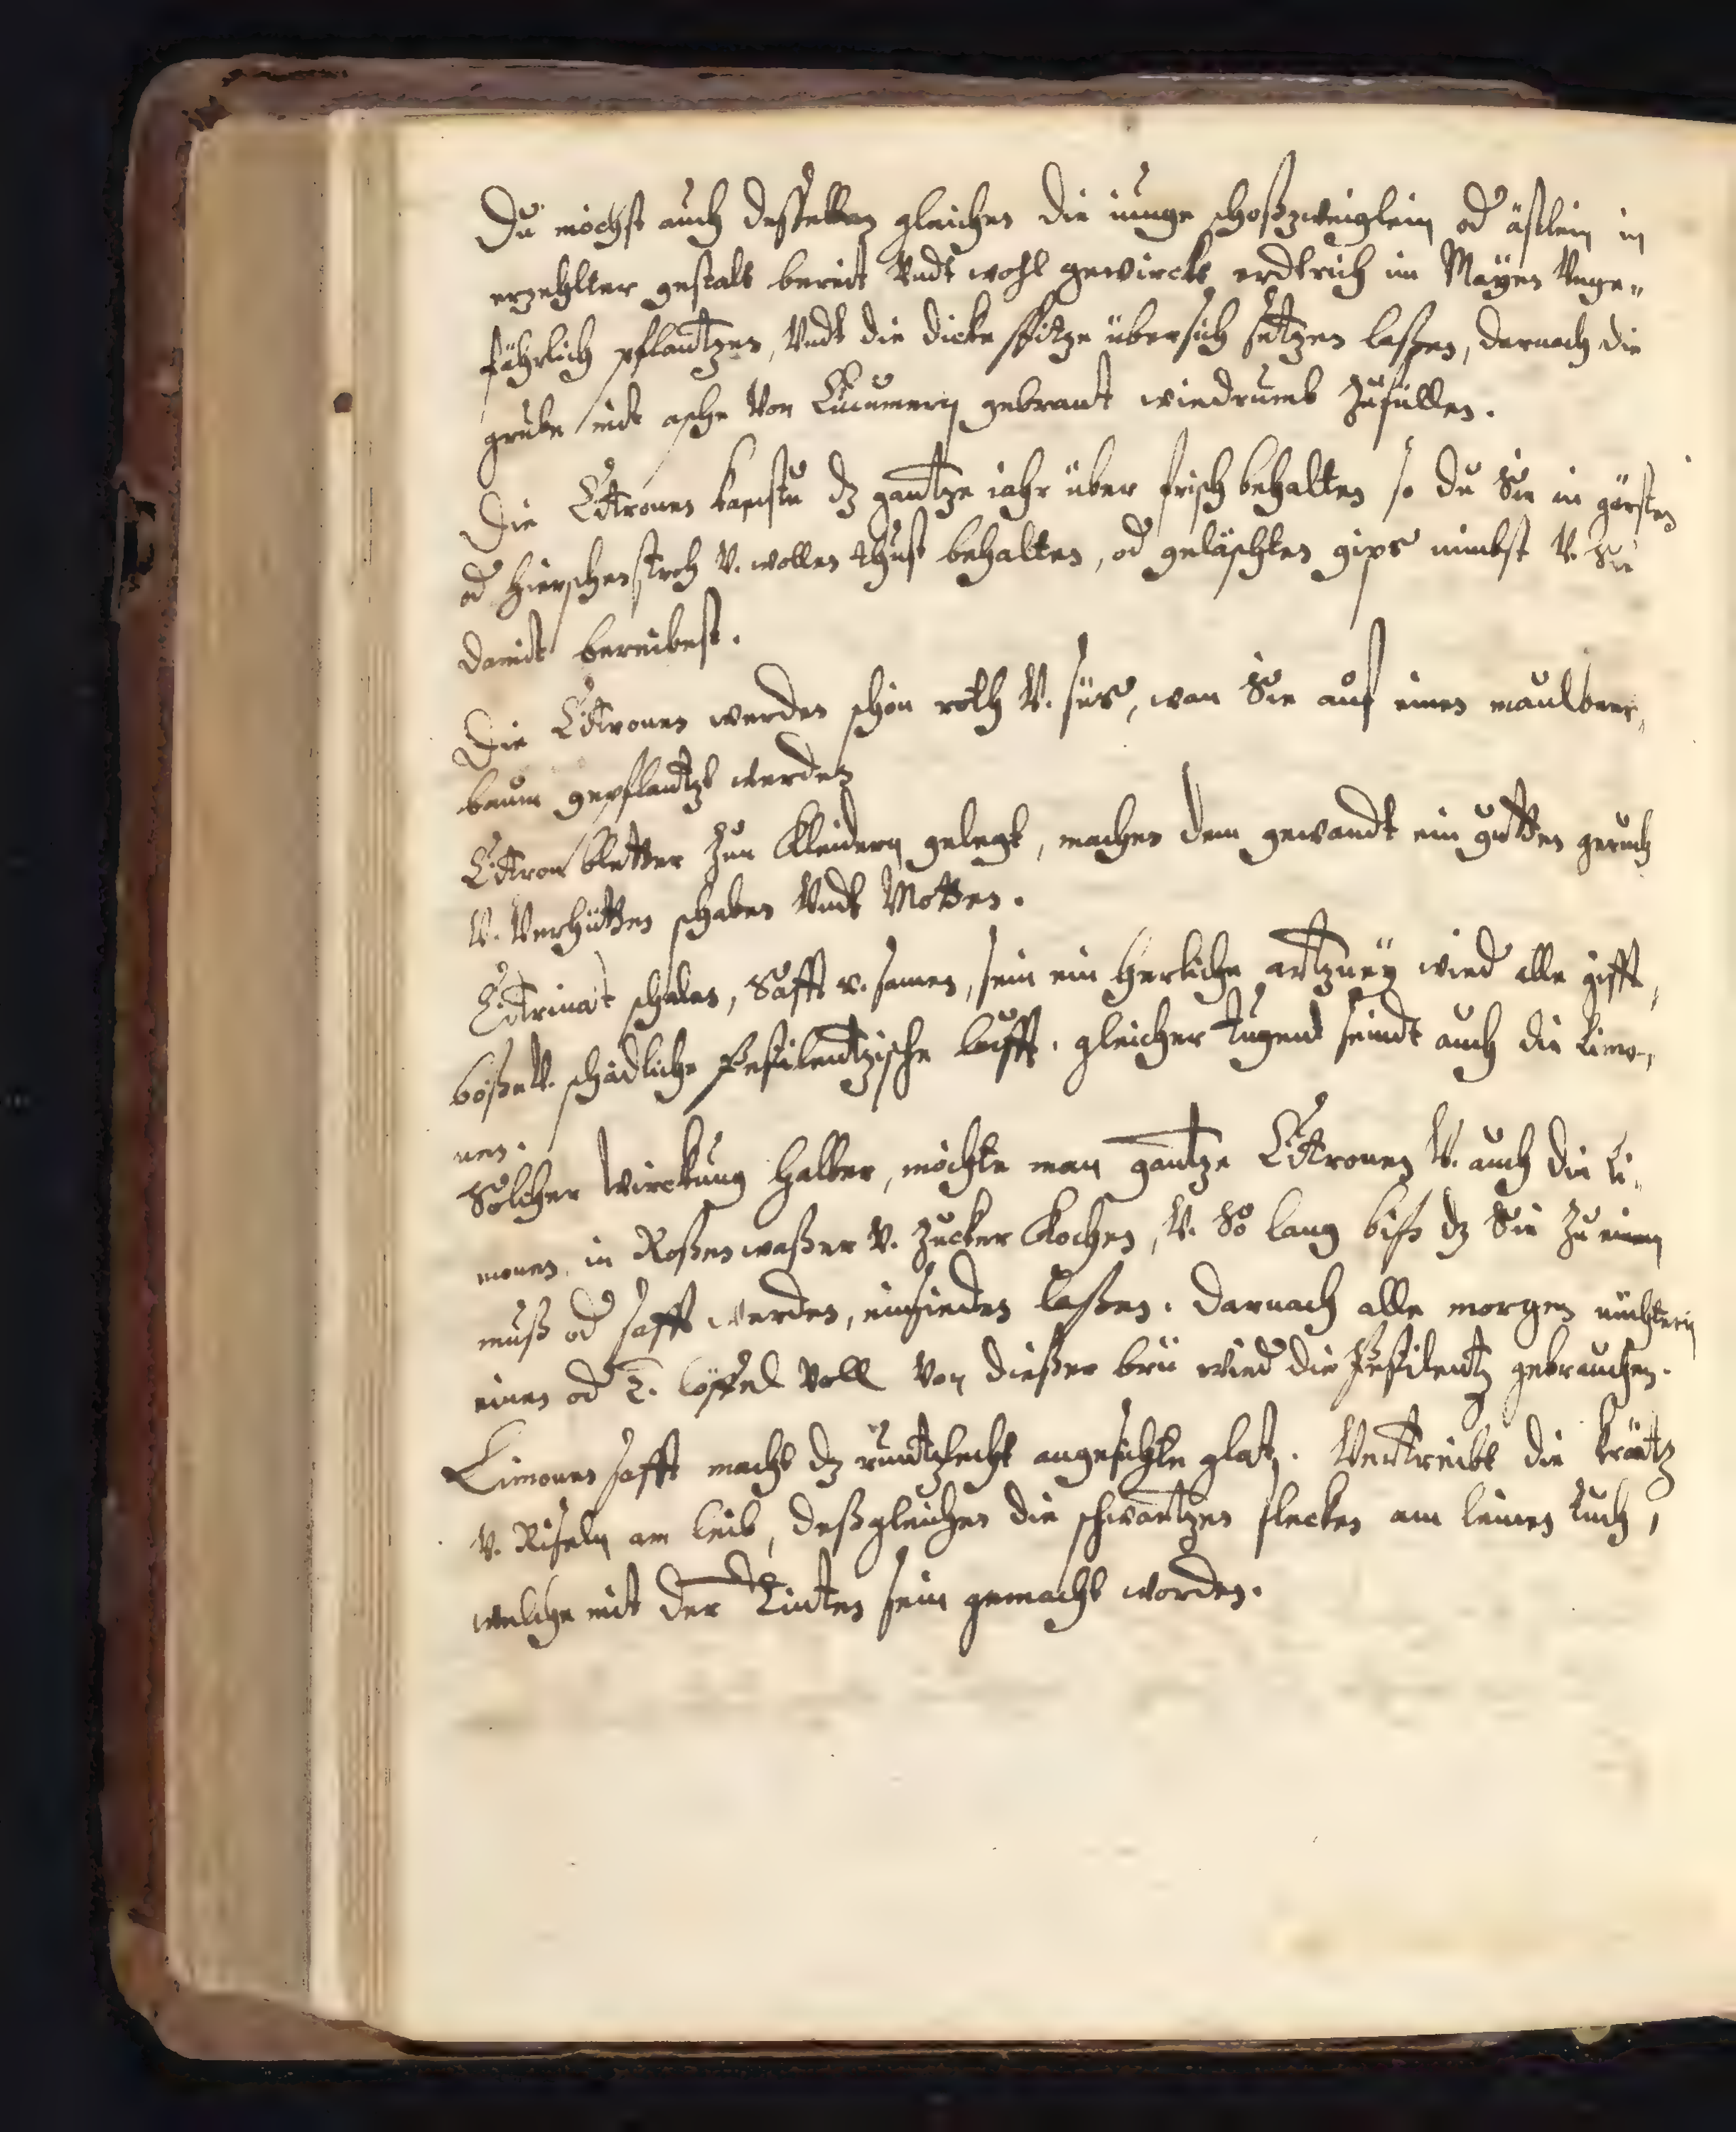 Du möchst auch desselben gleichen die iunge schoßzweiglein od ästlein in
erzehlter gestalt bereit Vndt wohl gewirckt erdtrich im Mäyen Vnge„
fährlich pflantzen, Vndt die dicke spitze übersich setzen laßen, darnach die
grube mit asche Von Cucumern gebrant wiedrumb Zufüllen.
Die Citronen kanstu dz gantze iahr über frisch behalten so du Sie in gersten
od Hierschenstroh V. wollen behalten, od geläschten gips nimbst V. Sie
damit bereibest.
Die Citronen werden schön roth V. süs, wan Sie auf einen maulbeer„
baum gepflantzt werden
Citron bletter Zun Kleidern gelegt, machen dem gewandt ein gutten geruch
V. Verhütten schaben Vndt Motten.
Citrinat schalen, Safft v. samen, sein ein herliche artzney wied alle gifft,
böße V. schädliche Pestilentzische lufft. gleicher Tugend seindt auch die Limo„
nen.
Solcher Wirckung halber, möchte man gantze Citronen V. auch die Li„
monen in Roßenwaßer V. Zucker Kochen, V. So lang biß dz Sie Zu einem
muß od safft werden, einsieden laßen. Darnach alle morgen nüchtern
einen od 2. löffel Voll Von dießer brü wied die Pestilentz gebrauchen.
Limonen safft macht dz runtzlecht angesichte glatz. Vertreibt die krätz
V. Riseln am leib, deßgleichen die schwartzen flecken am leinen Tuch,
welche mit der Tinten sein gemacht worden.